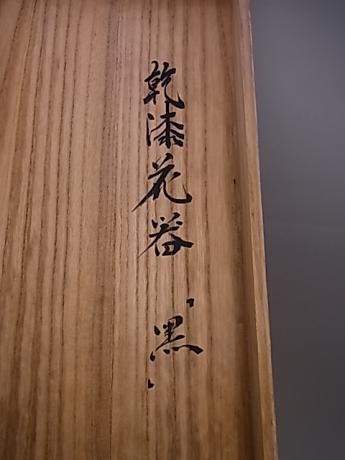 乾漆花器「黒」